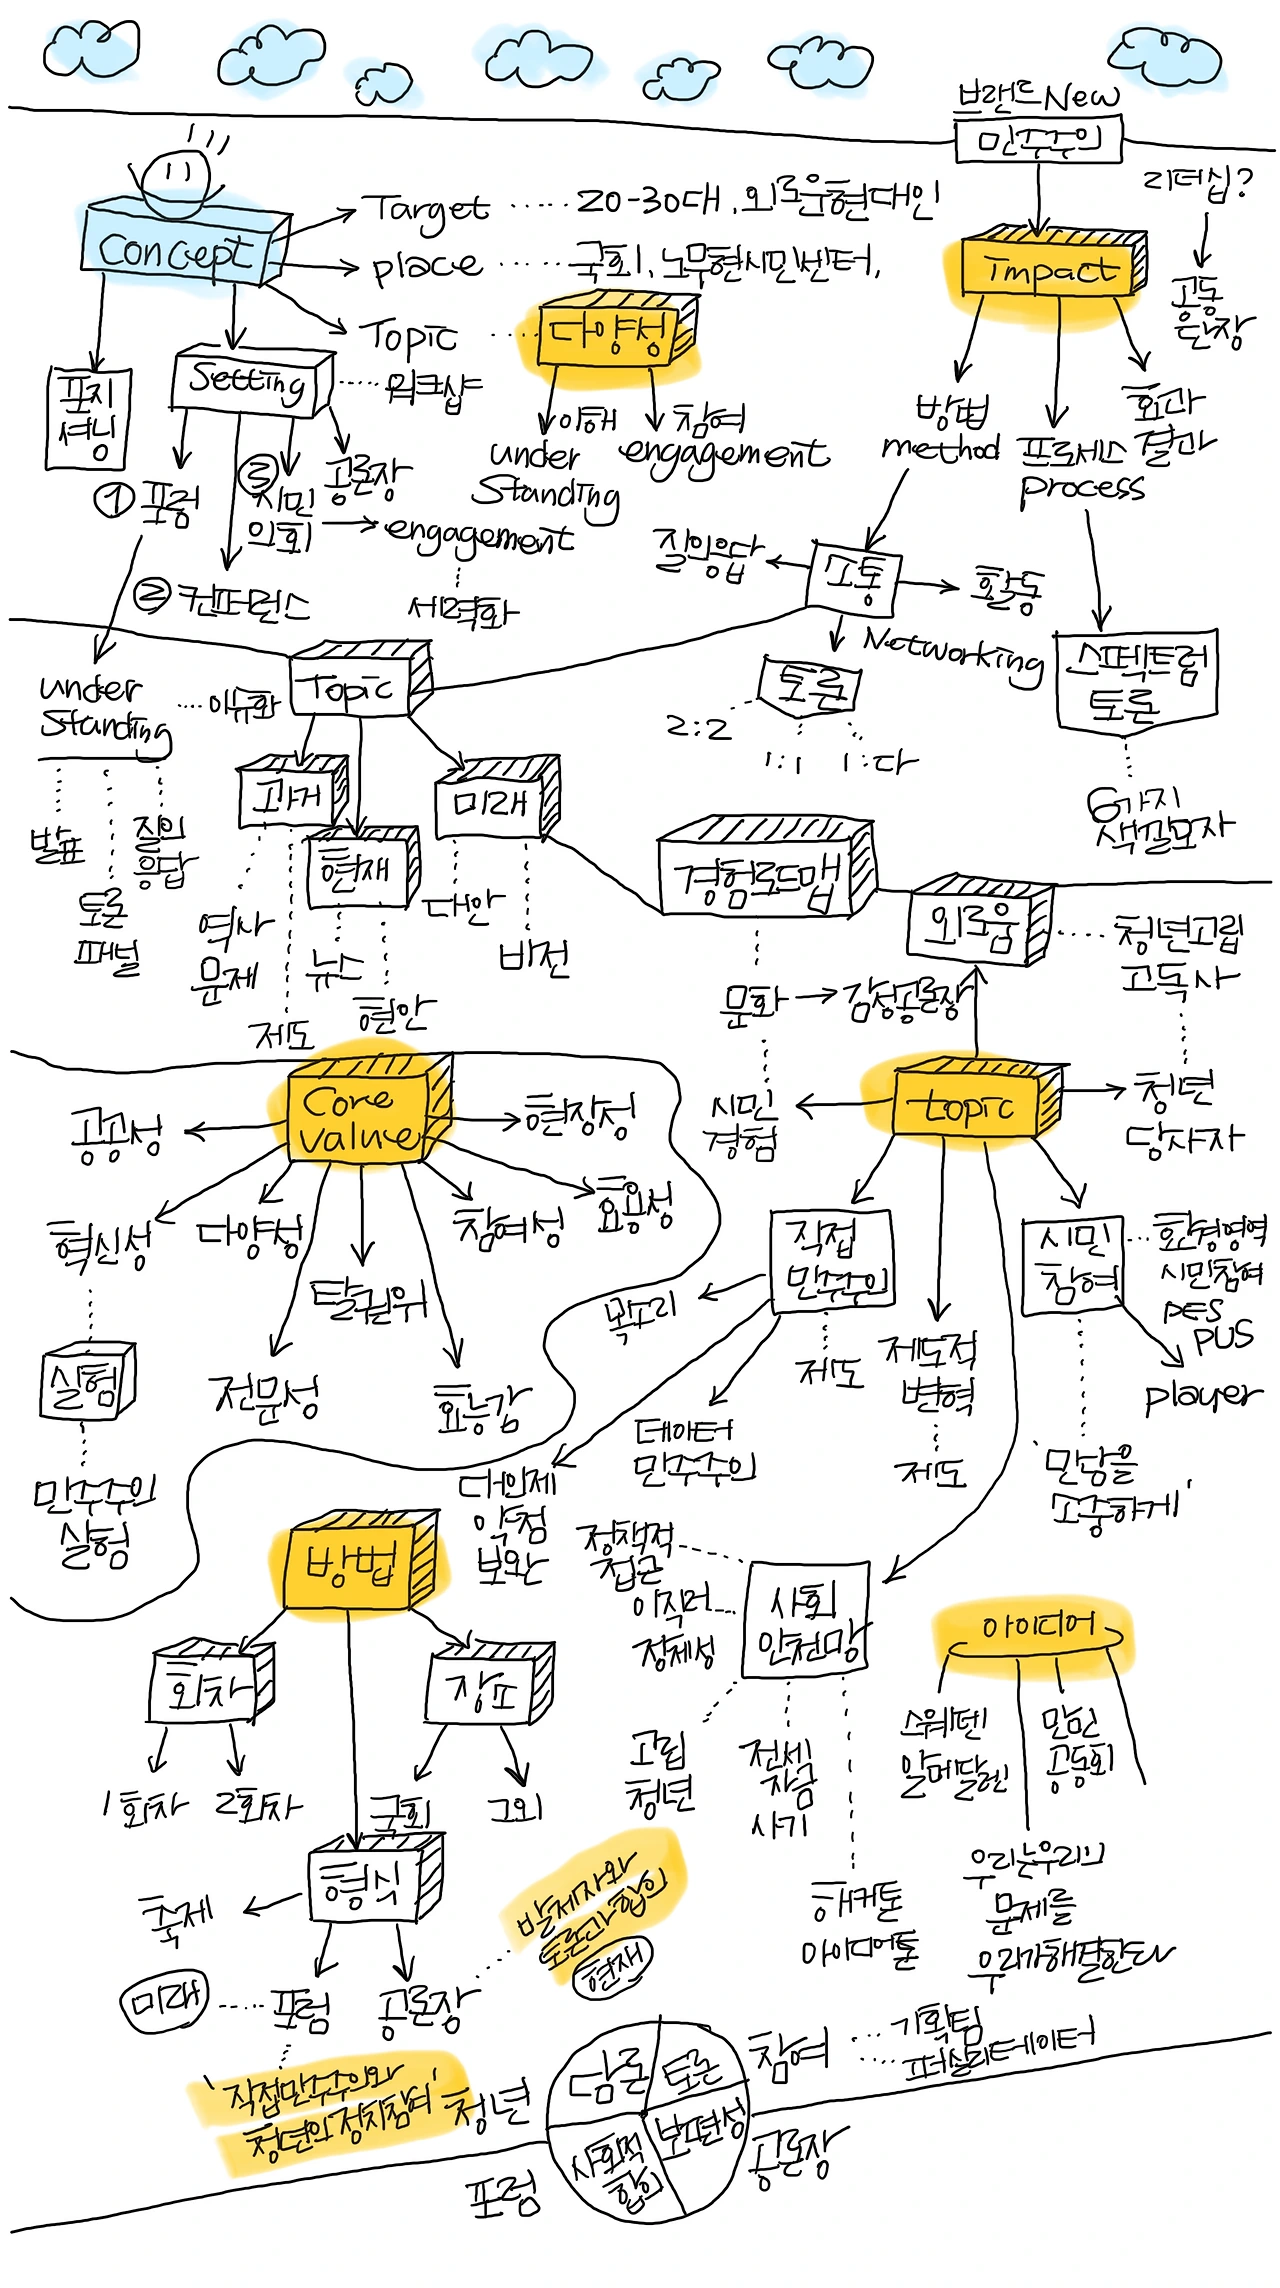 브랜드New
민주주의
리더십?
공동
단장
Concept
Target
20-30대, 외로운현대인
place
국회, 노무현시민센터,
Topic
다양성
Impact
포지
셔닝
Setting
워크샵
이해
under
Standing
참여
engagement
방법
method
프로세스
process
효과
결과
① 포럼
③
시민
의회
공론장
engagement
세력화
② 컨퍼런스
질의응답
소통
활동
Networking
토론
2:2
1:1
1:다
스펙트럼
토론
6가지
색깔모자
under
Standing
이슈화
발표
토론
패널
질의
응답
Topic
과거
현재
미래
역사
문제
제도
뉴스
현안
대안
비전
경험로드맵
외로움
청년고립
고독사
문화
감성공론장
시민
경험
topic
청년
당사자
Core
value
공공성
현장성
혁신성
다양성
탈권위
참여성
효용성
전문성
효능감
실험
민주주의
실험
직접
민주주의
목소리
제도
데이터
민주주의
대의제
약점
보완
제도적
변혁
제도
시민
참여
환경영역
시민참여
PES
PUS
player
'민담을
소중하게'
방법
회차
장소
1회차
2회차
국회
그외
형식
축제
미래
포럼
공론장
'직접민주주의와
청년의 정치참여'
발제자와
토론과 합의
현재
정책적
접근
이직러
정체성
사회
안전망
고립
청년
전세
자금
사기
해커톤
아이디어톤
아이디어
스웨덴
알메달렌
만민
공동회
우리는우리의
문제를
우리가해결한다
담론
토론
사회적
합의
보편성
청년
참여
포럼
공론장
기획팀
퍼실리테이터